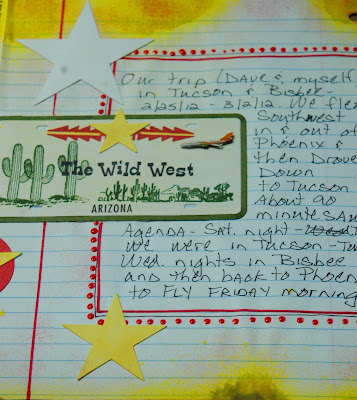 Our trip (Dave & myself
in Tucson & Bisbee -
2/25/12 - 3/2/12. We flew
Southwest
in & out of
Phoenix &
then Drove
Down
to Tucson
About 90
minutes
Agenda - Sat. night -
We were in Tucson -
Wed. nights in Bisbee
and then back to
to FLY FRIDAY morning
The Wild West
ARIZONA